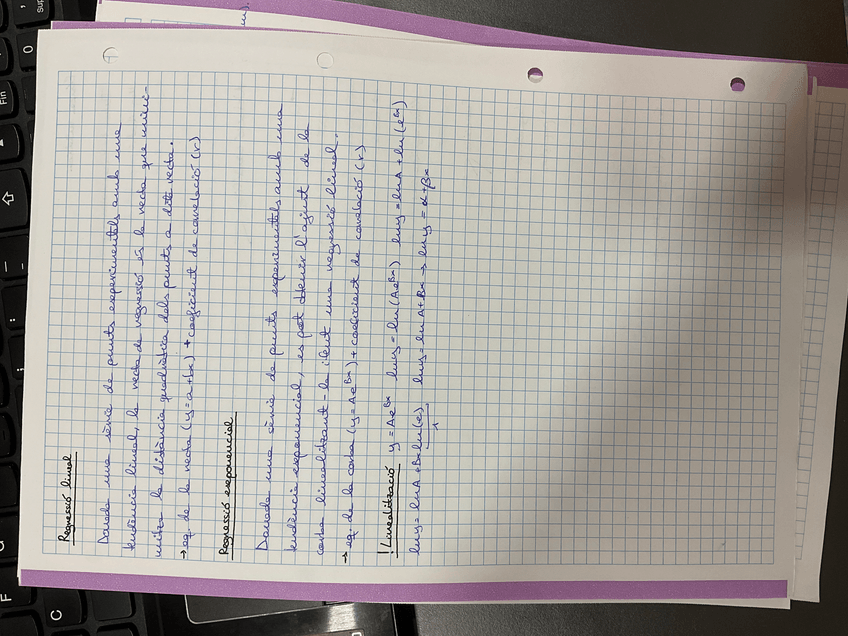 Regressió lineal
Donada una sèrie de punts experimentals amb una
tendència lineal, la recta de regressió és la recta que mini-
mitza la distància quadràtica dels punts a dita recta.
→ eq. de la recta (y=a+bx) + coeficient de correlació (r)
Regressió exponencial
Donada una sèrie de punts experimentals amb una
tendència exponencial, es pot obtenir l'ajust de la
corba linealitzant-la i fent una regressió lineal.
→ eq. de la corba (y=Ae^Bx) + coeficient de correlació (r)
! Linealització y = Ae^Bx lny = ln(Ae^Bx) lny = lnA + ln(e^Bx)
lny = lnA + Bx ln(e) lny = lnA + Bx → lny = α + βx
1
Fin
0
C
F